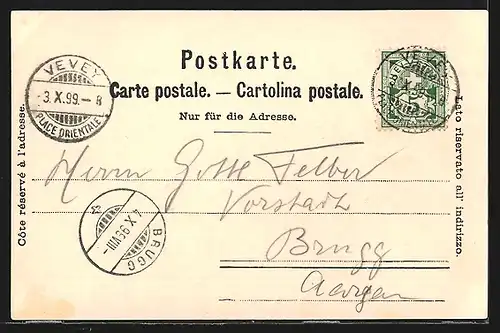 Postkarte.
Carte postale. — Cartolina postale.
Nur für die Adresse.
Côte réservé à l'adresse.
Lato riservato all' indirizzo.
VEVEY
3.X.99.–8
PLACE ORIENTALE
VEVEY
Herrn Gottl. Felber
Vorstadt
Brugg
Aargau
BRUGG
4.X.99.VIII–